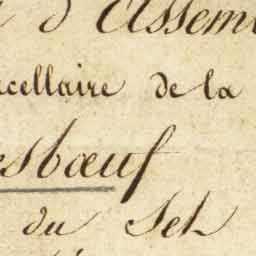 d'Assem
cellaire de la
sbœuf
du Sel